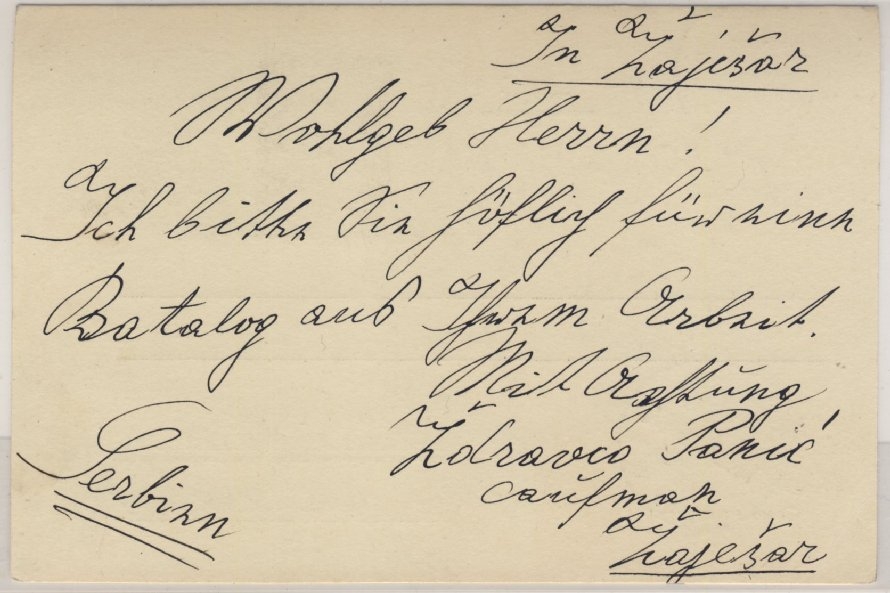 In Zaječar
Wohlgeb Herrn!
Ich bitte Sie höflich für eine
Katalog aus Ihrem Arbeit.
Mit Achtung
Ždravco Panić
caufman
Serbien
Zaječar